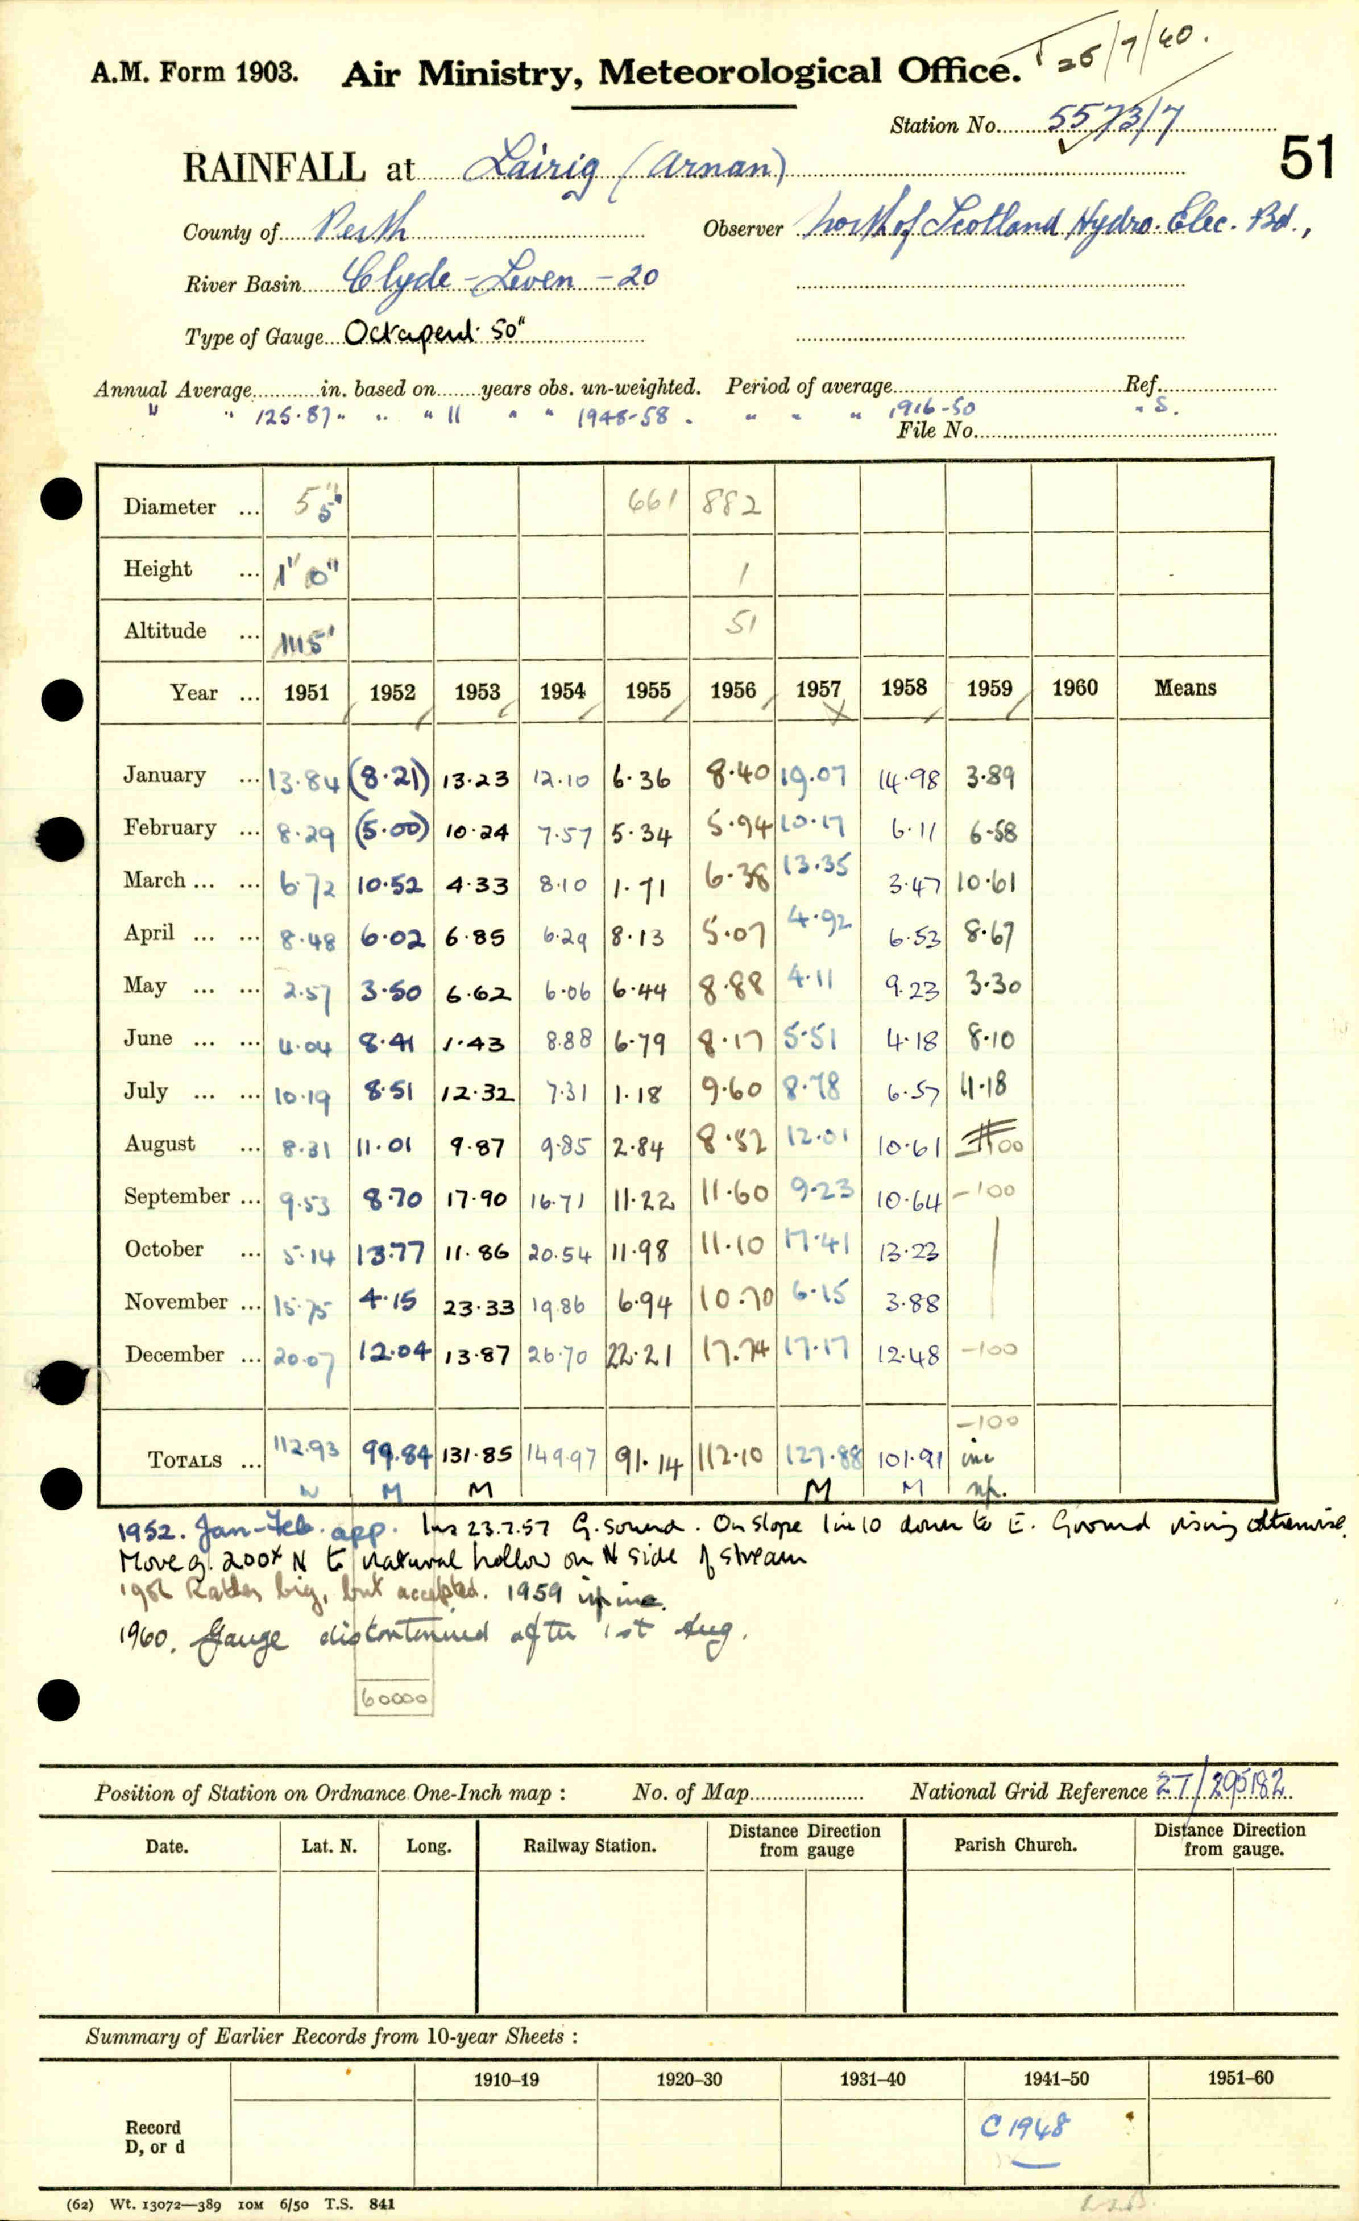 A.M. Form 1903. Air Ministry, Meteorological Office. 26/7/40.
Station No. 5573/7
51
RAINFALL at Lairig (Arnan)
County of Perth Observer North of Scotland Hydro. Elec. Bd.,
River Basin Clyde - Leven - 20
Type of Gauge Octapent 50"
Annual Average in. based on years obs. un-weighted. Period of average Ref.
" " 125.87 " " " 11 " " 1948-58 . " " " 1916-50 " S.
File No.
Diameter ... 5" 5" 661 882
Height ... 1' 0" 1
Altitude ... 1115' 51
Year ... 1951 1952 1953 1954 1955 1956 1957 1958 1959 1960 Means
January ... 13.84 (8.21) 13.23 12.10 6.36 8.40 19.07 14.98 3.89
February ... 8.29 (5.00) 10.24 7.57 5.34 5.94 10.17 6.11 6.58
March ... ... 6.72 10.52 4.33 8.10 1.71 6.38 13.35 3.47 10.61
April ... ... 8.48 6.02 6.85 6.29 8.13 5.07 4.92 6.53 8.67
May ... ... 2.57 3.50 6.62 6.06 6.44 8.88 4.11 9.23 3.30
June ... ... 4.04 8.41 1.43 8.88 6.79 8.17 5.51 4.18 8.10
July ... ... 10.19 8.51 12.32 7.31 1.18 9.60 8.78 6.57 11.18
August ... 8.31 11.01 9.87 9.85 2.84 8.52 12.01 10.61
September ... 9.53 8.70 17.90 16.71 11.22 11.60 9.23 10.64 -100
October ... 5.14 13.77 11.86 20.54 11.98 11.10 17.41 13.23
November ... 15.75 4.15 23.33 19.86 6.94 10.70 6.15 3.88
December ... 20.07 12.04 13.87 26.70 22.21 17.74 17.17 12.48 -100
-100
TOTALS ... 112.93 99.84 131.85 149.97 91.14 112.10 127.88 101.91 inc
N M M M M np.
1952. Jan-Feb. app. Ins 23.7.57 G. sound. On slope 1 in 10 down to E. Ground rising otherwise.
Move g. 200x N to natural hollow on N side of stream
1956 Rather big, but accepted. 1959 np inc.
1960. Gauge discontinued after 1st Aug.
60000
Position of Station on Ordnance One-Inch map : No. of Map National Grid Reference 27/295182
Date. Lat. N. Long. Railway Station. Distance from Direction gauge Parish Church. Distance from Direction gauge.
Summary of Earlier Records from 10-year Sheets :
1910–19 1920–30 1931–40 1941–50 1951–60
Record
D, or d
C 1948
(62) Wt. 13072—389 10M 6/50 T.S. 841